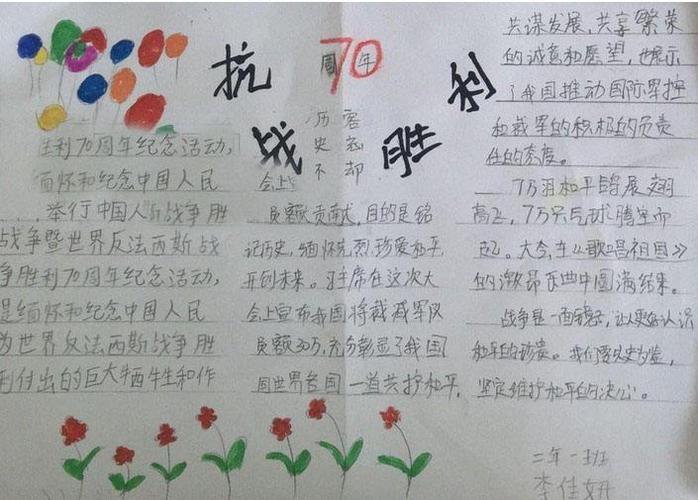 抗战胜利
70周年
历史不容忘却
胜利70周年纪念活动,
缅怀和纪念中国人民
举行中国人民战争胜
战争暨世界反法西斯战
争胜利70周年纪念活动,
是缅怀和纪念中国人民
为世界反法西斯战争胜
利付出的巨大牺牲和作
会上
员额贡献,目的是铭
记历史,缅怀先烈,珍爱和平,
开创未来。习主席在这次大
会上宣布我国将裁减军队
员额30万,充分彰显了我国
同世界各国一道共护和平,
共谋发展,共享繁荣
的诚意和愿望,也展示
了我国推动国际军控
和裁军的积极的负责
任的态度。
7万羽和平鸽展翅
高飞,7万只气球腾空而
起。大会在《歌唱祖国》
的激昂歌曲中圆满结束。
战争是一面镜子,让人更好认识
和平的珍贵。我们要以史为鉴,
坚定维护和平的决心。
二年一班
李佳妍